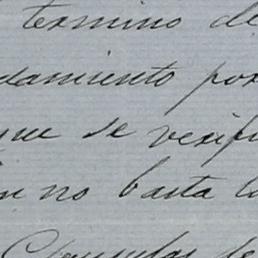 termino de
damiento por
que se verifi
n no basta la
Clausulas de